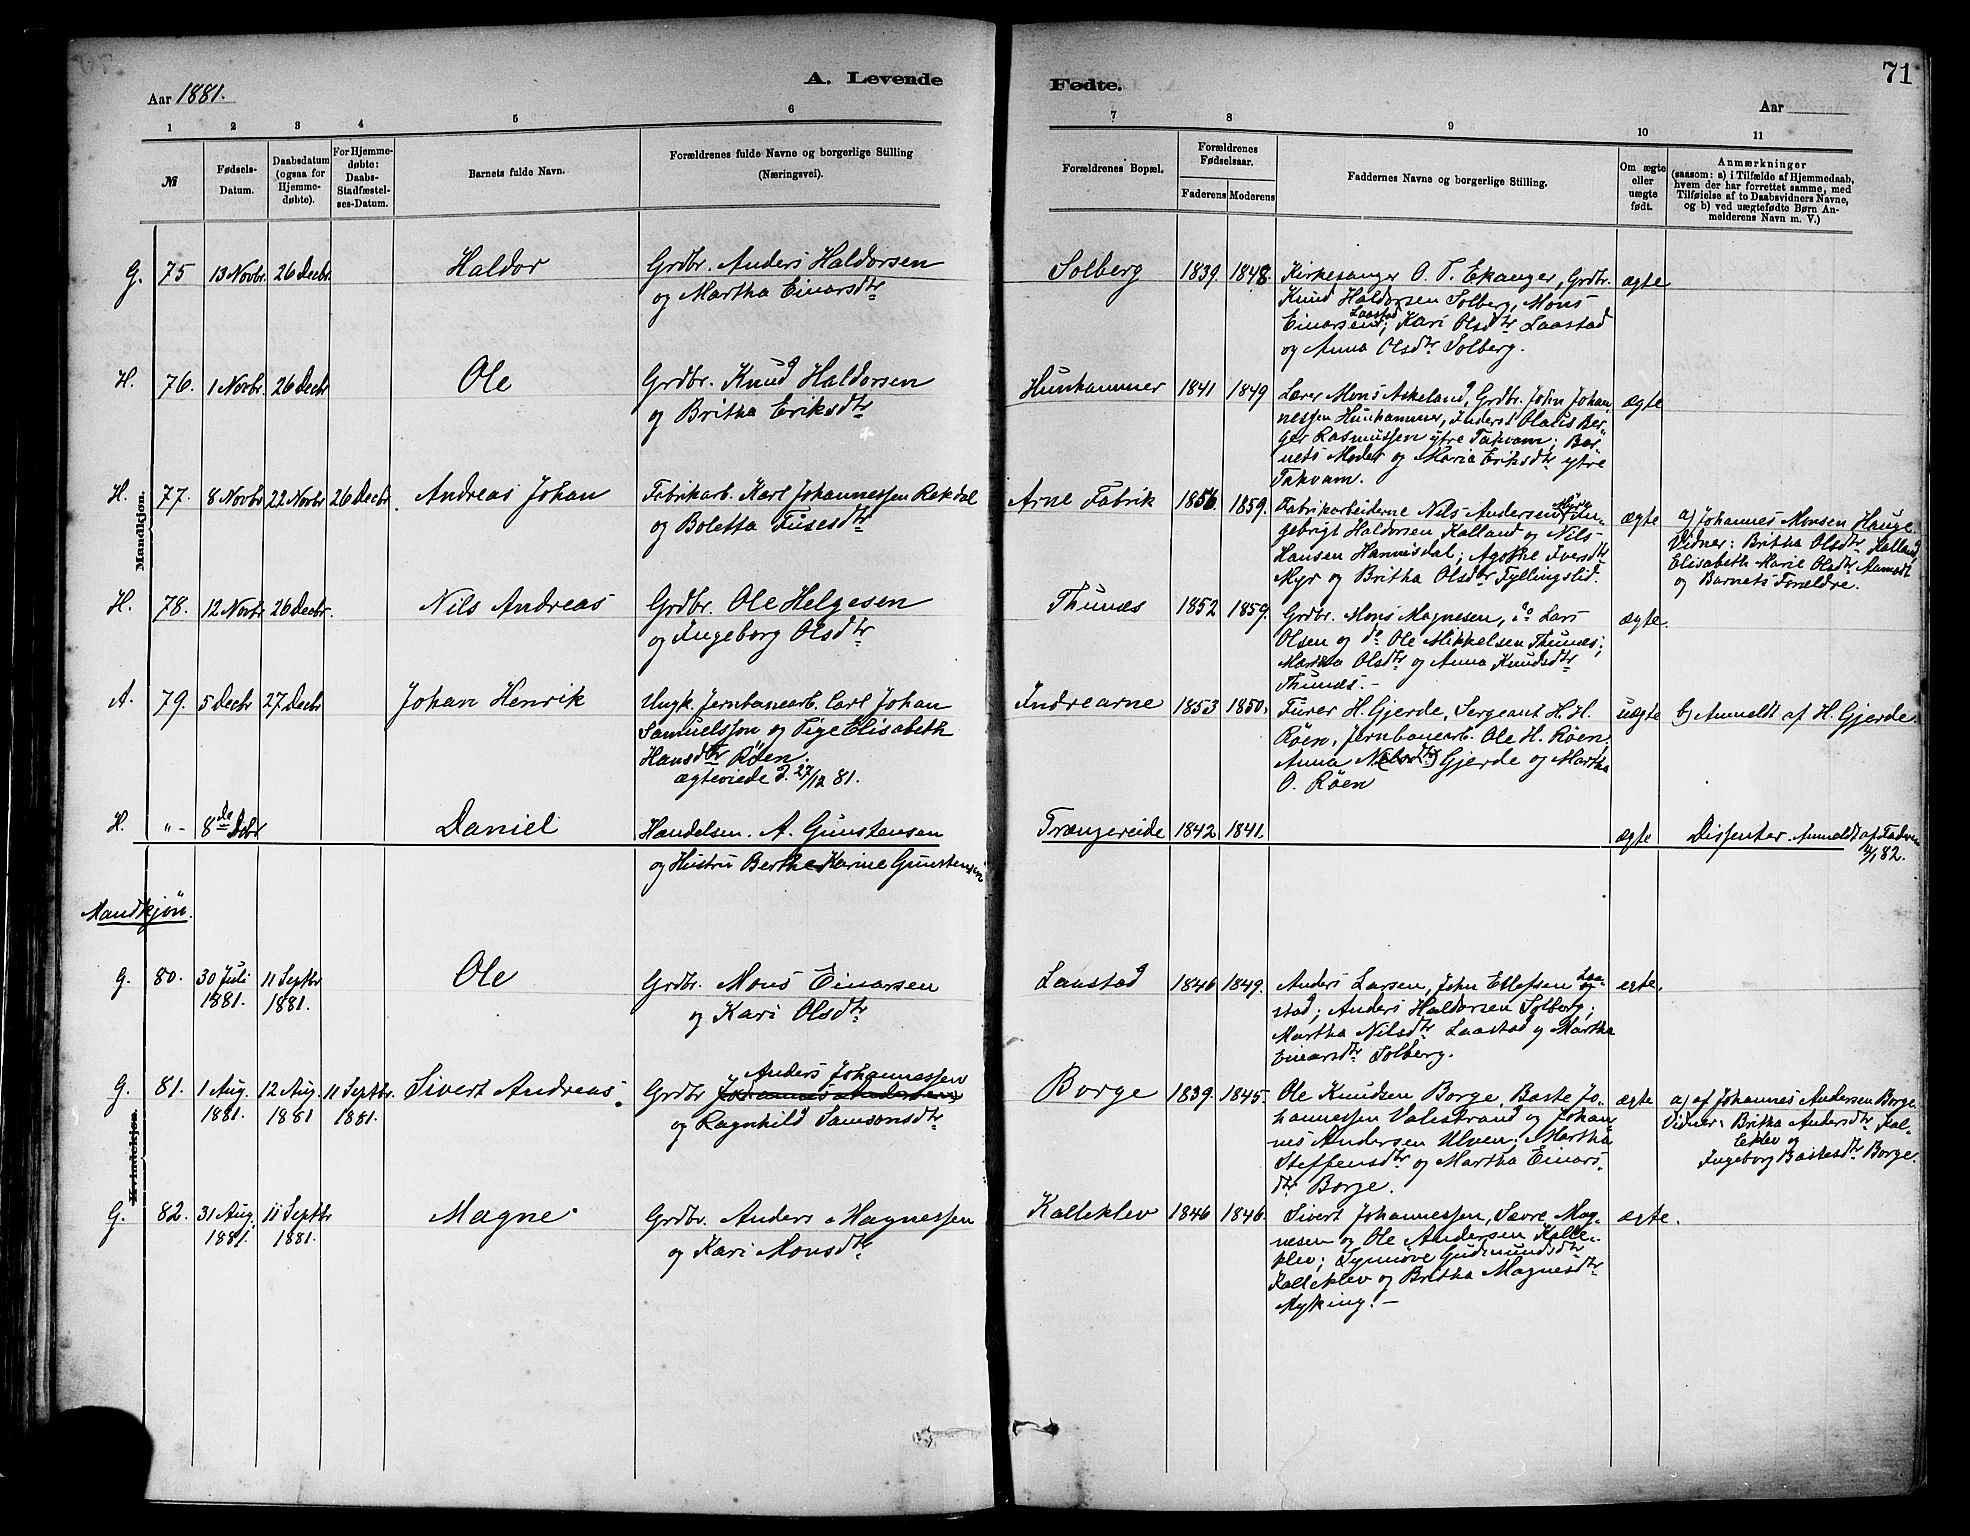 71
A. Levende Fødte.
Aar 1881.
Aar
1 2 3 4 5 6 7 8 9 10 11
№
Fødsels-Datum.
Daabsdatum (ogsaa for Hjemmedøbte).
For Hjemmedøbte: Daabs-Stadfæstelses-Datum.
Barnets fulde Navn.
Forældrenes fulde Navne og borgerlige Stilling
(Næringsvei).
Forældrenes Bopæl.
Forældrenes Fødselsaar.
Faderens Moderens
Faddernes Navne og borgerlige Stilling.
Om ægte eller uægte født.
Anmærkninger
(saasom: a) i Tilfælde af Hjemmedaab,
hvem der har forrettet samme, med
Tilføielse af to Daabsvidners Navne,
og b) ved uægtefødte Børn An-
melderens Navn m. V.)
Mandkjøn.
G. 75 13 Novbr. 26 Decbr. Haldor
Grdbr. Anders Haldorsen
og Martha Einarsdtr
Solberg 1839 1848.
Kirkesanger O. T. Ekanger, Grdbr.
Knud Haldorsen Solberg, Mons
Einarsen Laastad; Kari Olsdtr Laastad
og Anna Olsdtr Solberg.
ægte
H. 76. 1 Novbr. 26 Decbr Ole
Grdbr. Knud Haldorsen
og Britha Eriksdtr
Hunhammer 1841 1849
Lærer Mons Askeland, Grdbr. John Johan-
nessen Hunhammer, Inderst Olaus Ber-
ger Rasmussen ytre Takvam; Bar-
nets Moder og Maria Eriksdtr ytre
Takvam.
ægte
H. 77. 8 Novbr 22 Novbr 26 Decbr. Andreas Johan
Fabrikarb. Karl Johannessen Rekdal
og Boletta Fusesdtr
Arne Fabrik 1856. 1859.
Fabrikarbeiderne Nils Andersen Myr, In-
gebrigt Haldorsen Kalland og Nils
Hansen Hannisdal; Agathe Iversdtr
Myr og Britha Olsdtr Fyllingslid.
ægte
a) Johannes Monsen Hauge.
Vidner: Britha Olsdtr Kalland
Elisabeth Marie Olsdtr Aamodt
og Barnets Forældre.
H. 78. 12 Novbr 26 Decbr. Nils Andreas
Grdbr. Ole Helgesen
og Ingeborg Olsdtr
Thunæs 1852 1859.
Grdbr. Mons Magnesen, do Lars
Olsen og do Ole Mikkelsen Thunæs;
Martha Olsdtr og Anna Knudsdtr
Thunæs.-
ægte.
A. 79. 5 Decbr 27 Decbr Johan Henrik
Ungk. Jernbanearb. Carl Johan
Samuelsson og Pige Elisabeth
Hansdtr Røen.
ægteviede d. 27/12 81.
Indrearne 1853 1850.
Furer H. Gjerde, Sergeant H. H.
Røen, Jernbanearb. Ole H. Røen,
Anna N(ilsdtr) Gjerde og Martha
O. Røen
uægte
b) Anmeldt af H. Gjerde.
H. "- 8de Dcbr Daniel
Handelsm. A. Gunstensen
og Hustru Berthe Karine Gunstensen
Trængereide 1842 1841.
ægte
Dissenter. Anmeldt af Faderen
82.
Mandkjøn.
G. 80. 30 Juli 1881. 11 Septbr 1881. Ole
Grdbr. Mons Einarsen
og Kari Olsdtr
Laastad 1846 1849.
Anders Larsen, John Ellefsen Laa-
stad; Anders Haldorsen Solberg;
Martha Nilsdtr Laastad og Martha
Einarsdtr Solberg.
egte.
Kvindekjøn.
G. 81. 1 Aug. 1881. 12 Aug. 1881 11 Septbr. 1881. Sivert Andreas.
Grdbr Johannes Andersen Anders Johannessen
og Ragnhild Samsonsdtr
Borge 1839 1845.
Ole Knudsen Borge, Baste Jo-
hannessen Valestrand og Johan-
nes Andersen Ulven; Martha
Steffensdtr og Martha Einars-
dtr Borge.
ægte
a) af Johannes Andersen Borge
Vidner: Britha Andersdtr Kal-
leklev og
Ingeborg Bastesdtr Borge.
G. 82. 31 Aug. 1881. 11 Septbr 1881. Magne
Grdbr. Anders Magnessen
og Kari Monsdtr
Kalleklev 1846 1846.
Sivert Johannessen, Sævre Mag-
nesen og Ole Andersen Kalle-
klev; Synnøve Gudmundsdtr
Kalleklev og Britha Magnesdtr
Myking.-
ægte.